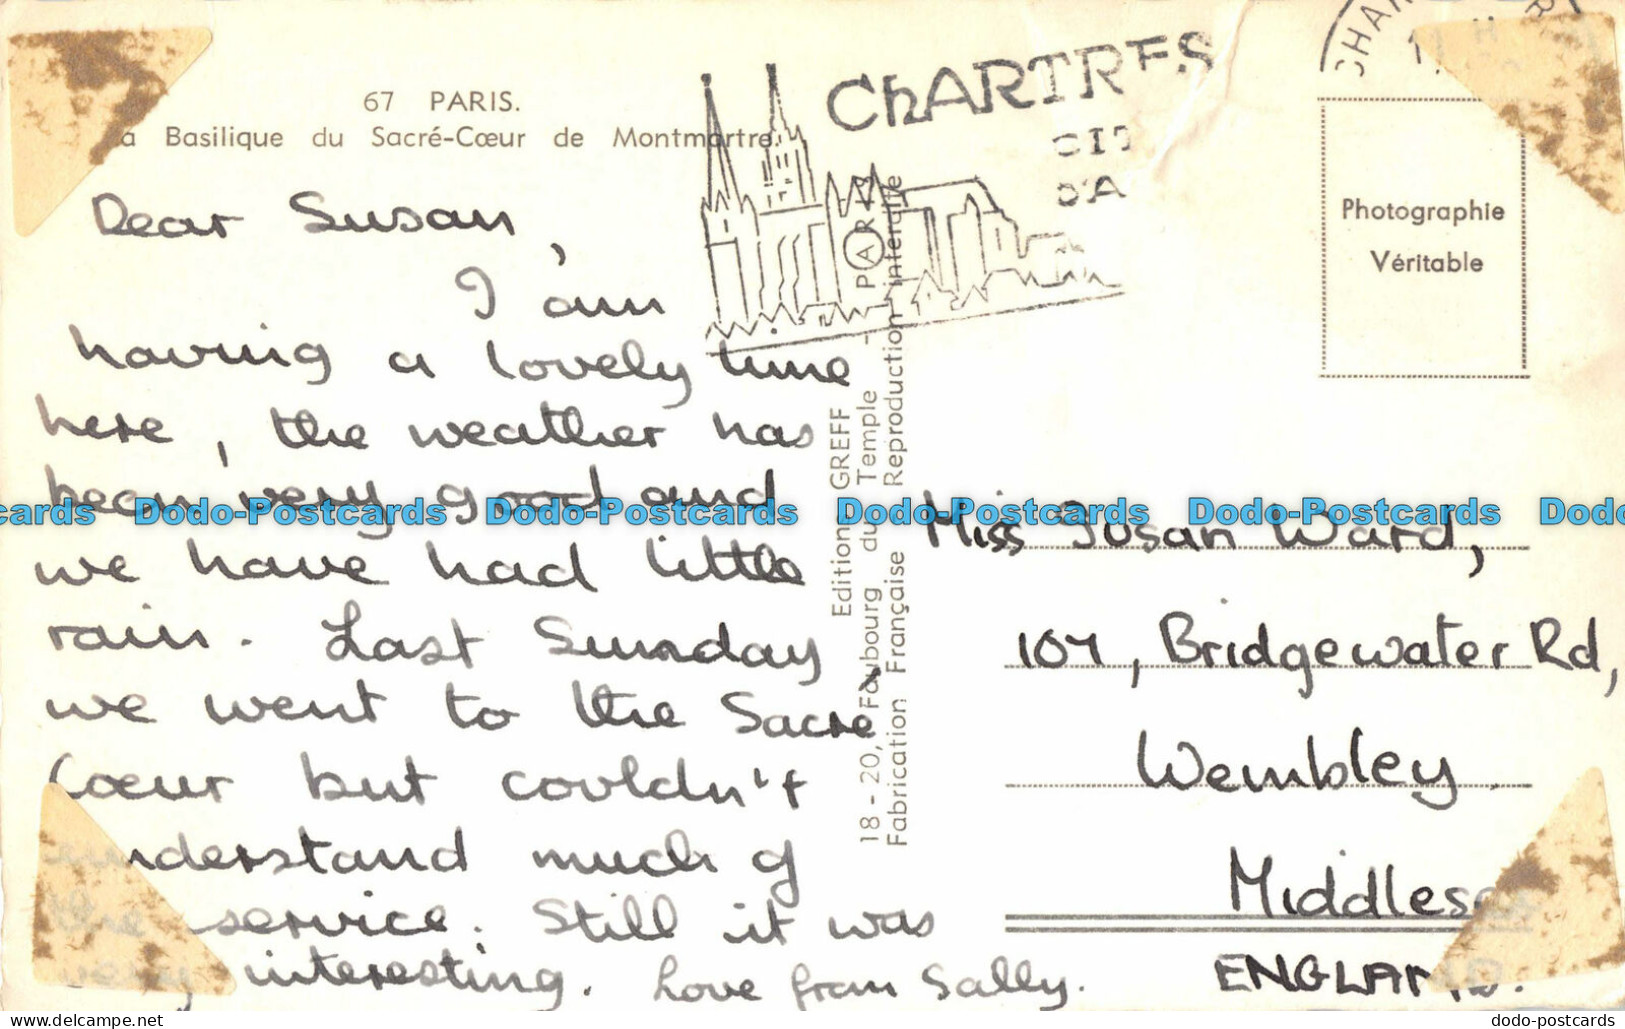 67 PARIS.
Basilique du Sacré-Cœur de Montmartre.
Dear Susan,
I am
having a lovely time
here, the weather has
been very good and
we have had little
rain. Last Sunday
we went to the Sacre
Coeur but couldn't
understand much of
the service. Still it was
very interesting. Love from Sally.
CHARTRES
Editions GREFF
18-20, Faubourg du Temple - PARIS
Fabrication Française Reproduction interdite
Photographie
Véritable
Miss Susan Ward,
107, Bridgewater Rd,
Wembley.
Middlesex
ENGLAND.
cards Dodo-Postcards Dodo-Postcards Dodo-Postcards Dodo-Postcards Dodo
dodo-postcards.com
dodo-postcards